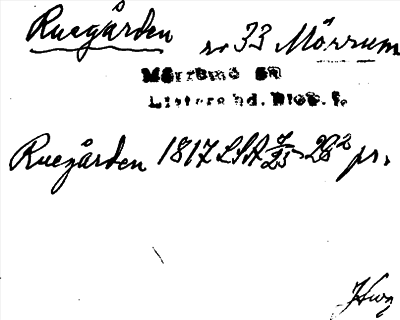 Ruegården nr 33 Mörrum
Mörrums sn
Listers hd. Blek. l.
Ruegården 1817 LSA 7/25 28² pr.